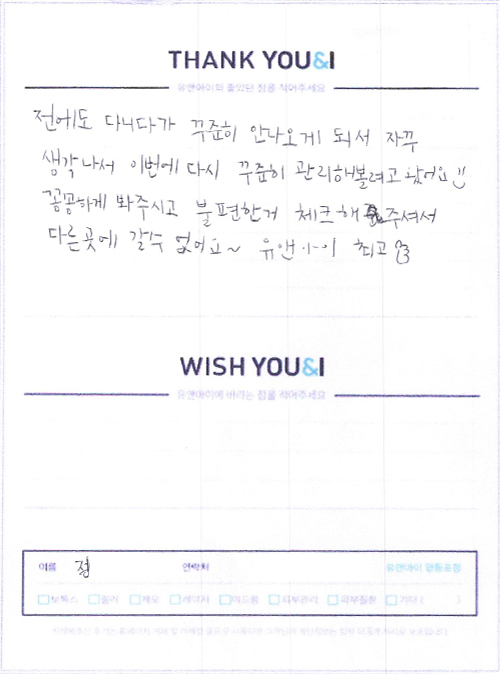 THANK YOU&I
유앤아이의 좋았던 점을 적어주세요
전에도 다니다가 꾸준히 안나오게 되서 자꾸
생각나서 이번에 다시 꾸준히 관리해볼려고 왔어요
꼼꼼하게 봐주시고 불편한거 체크해 주셔서
다른곳에 갈수 없어요~ 유앤아이 최고
WISH YOU&I
유앤아이에 바라는 점을 적어주세요
이름 정 연락처 유앤아이 명동포점
보톡스 필러 제모 레이저 여드름 피부관리 피부질환 기타 ( )